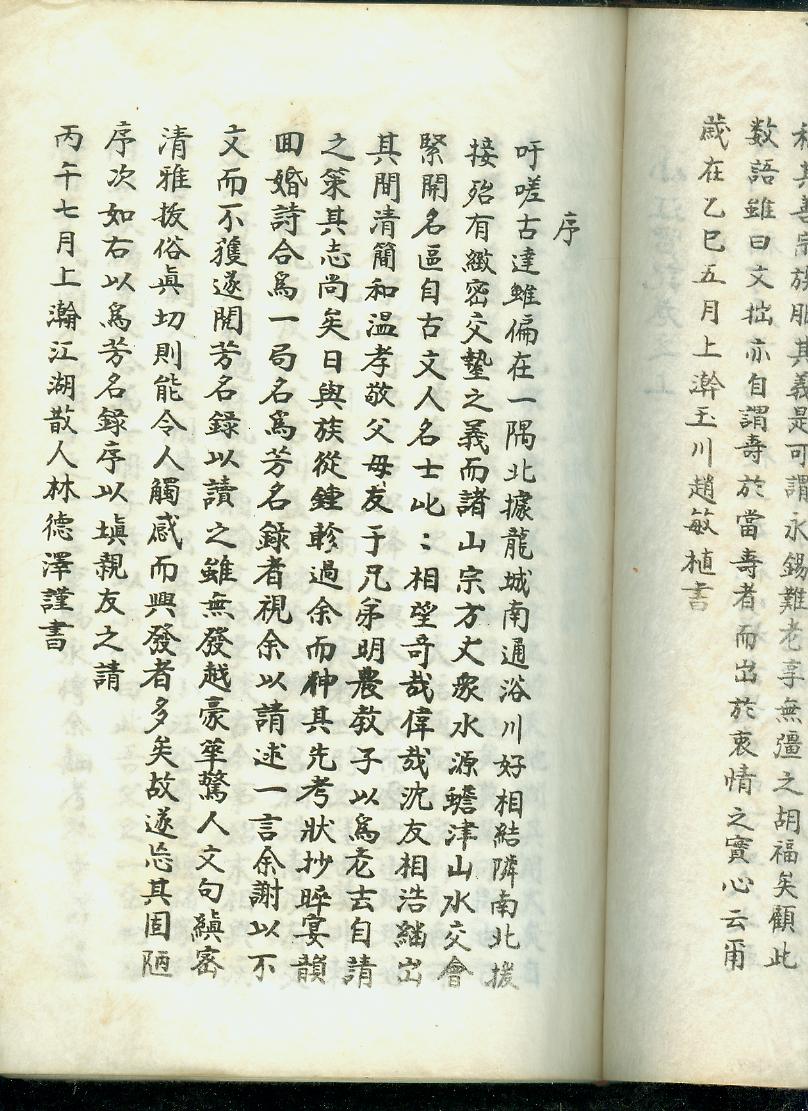 和其善宗族服其義是可謂永錫難老享無疆之胡福矣顧此
数語雖曰文拙亦自謂壽於當壽者而出於衷情之實心云爾
歲在乙巳五月上澣玉川趙敏植書
序
吁嗟古達雖偏在一隅北據龍城南通浴川好相結隣南北援
接殆有緻密交摯之義而諸山宗方丈衆水源蟾津山水交會
緊開名區自古文人名士比〻相望奇哉偉哉沈友相浩繼出
其間清簡和温孝敬父母友于兄弟明農教子以爲老去自請
之策其志尚矣日與族從鍾軫過余而伸其先考狀抄晬宴韻
囬婚詩合爲一局名爲芳名錄者視余以請述一言余謝以不
文而不獲遂閱芳名錄以讀之雖無發越豪華驚人文句縝密
清雅拔俗眞切則能令人觸感而興發者多矣故遂忘其固陋
序次如右以爲芳名錄序以塡親友之請
丙午七月上瀚江湖散人林德澤謹書